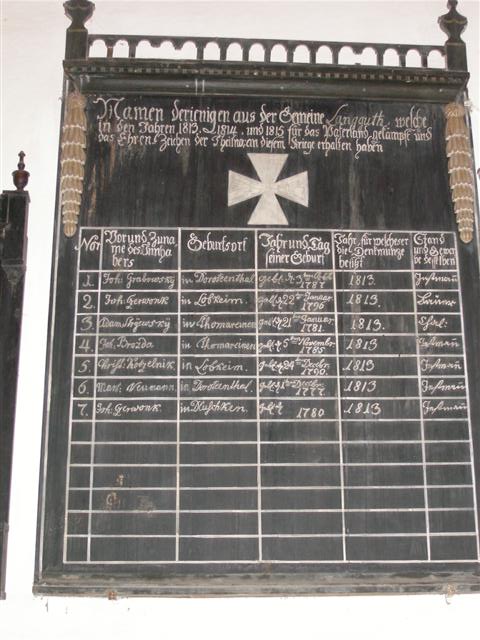 Namen derienigen aus der Gemeine Langguth, welche
in den Jahren 1813. 1814. und 1815 für das Vaterland gekämpft und
das Ehren Zeichen der Theilname an diesem Kriege erhalten haben
Nor Vor und Zuna me des Innha bers Geburtsort Jahr und Tag seiner Geburt Jahr, für welches er die Denkmünze besitzt Stand und Gewerbe desselben
1. Joh. Grabowsky in Dorotenthal. 1787 1813. Instmann
2. Joh. Gerwonk in Lobkeim. geb. d. 22ten Januar 1796 1813.
3. Adam in Thomareinen geb. d. 21ten Januar 1781. 1813.
4. Broda in Thomareinen geb. d. 5ten Novembr 1785 1813 Instmann
5. Christ. Kotzelnik in Lobkeim. geb. d. 24ten Decbr. 1790 1813 Instmann
6. Mart. Neumann in Dorotenthal. Decbr. 1777 1813 Instmann
7. Joh. Gerwonk. in Duschken. geb. d. 1780 1813 Instmann